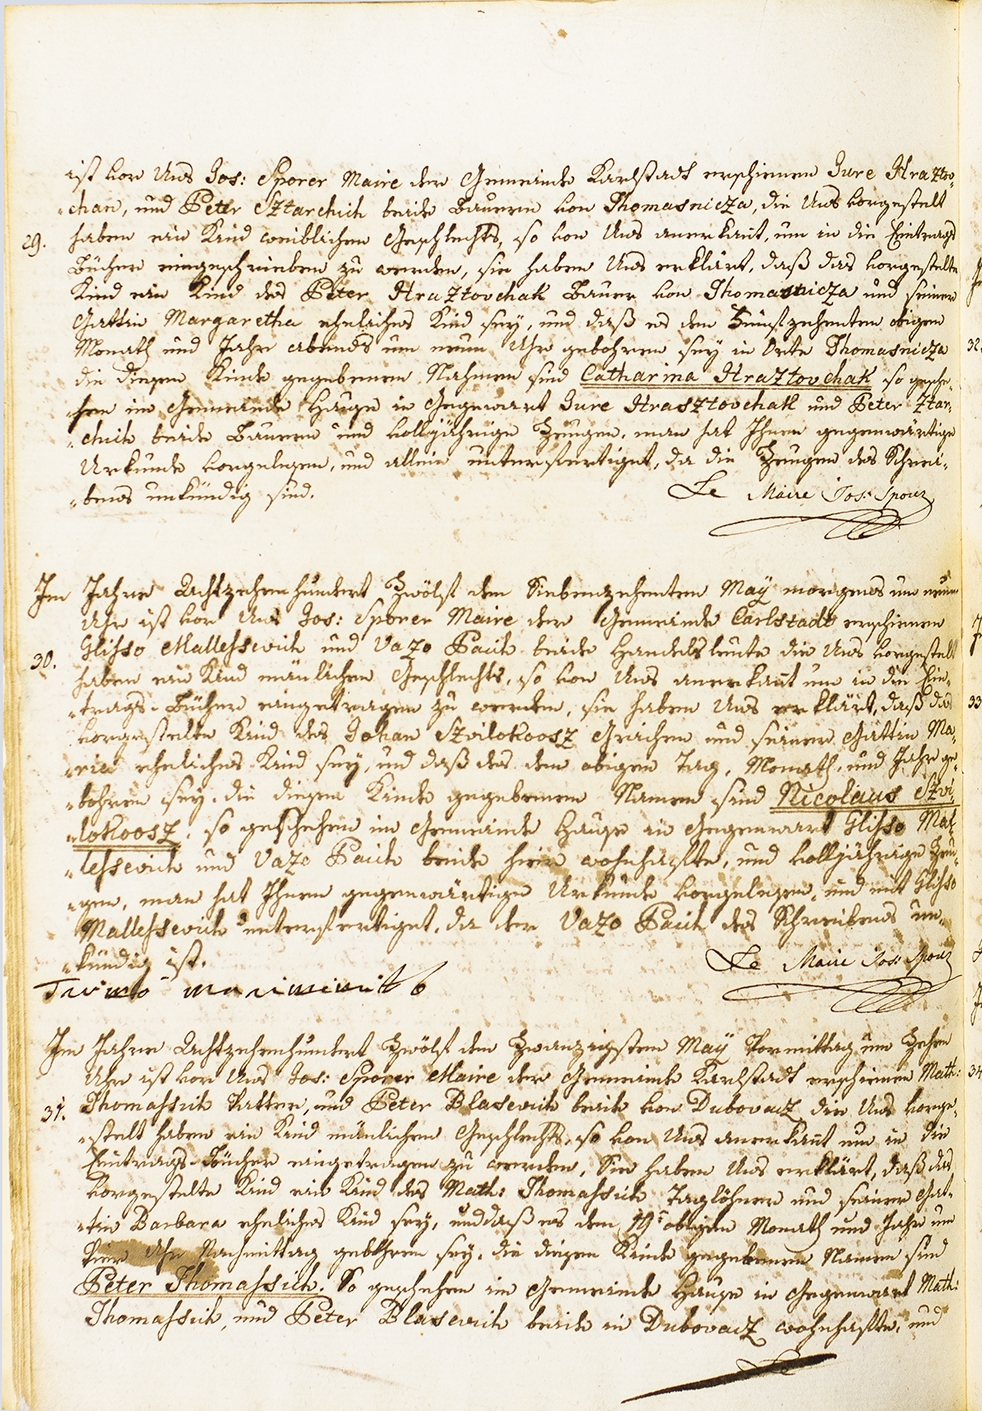 ist vor Uns Jos: Sporer Maire der Gemeinde Karlstadt erschienen Jure Hraszto-
-chan, und Peter Sztarchich beide Bauern von Thomasnicza, die Uns vorgestelt
29. haben ein Kind weiblichen Geschlechts, so von Uns anerkant, um in die Eintrags
Bücher eingeschrieben zu werden, sie haben Uns erklärt, daß das vorgestelte
Kind ein Kind des Peter Hrasztovchak Bauer von Thomasnicza und seiner
Gattin Margaretha eheliches Kind sey, und daß es den Fünfzehenten obigen
Monath und Jahrs abends um neun Uhr gebohren sey in Orte Thomasnicza
die diesem Kinde gegebenen Nahmen sind Catharina Hrasztovchak so gesche-
-hen im Gemeinde Hause in Gegenwart Jure Hrasztovchak und Peter Ztar-
-chich beide Bauern und volljährige Zeugen, man hat Ihnen gegenwärtige
Urkunde vorgelesen, und allein unterfertiget, da die Zeugen des Schrei-
-bens unkündig sind.
Le Maire Jos: Sporer
Im Jahre Achtzehenhundert Zwölf den Siebenzehenten May morgens um neun
Uhr ist vor Uns Jos: Sporer Maire der Gemeinde Carlstadt erschienen
30. Glisso Mallessevich und Vazo Paich beide Handelsleute die Uns vorgestelt
haben ein Kind mänlichen Geschlechts, so von Uns anerkant um in die Ein-
-trags-Bücher eingetragen zu werden, sie haben Uns erklärt, daß das
vorgestelte Kind des Johan Szvilokoosz Griechen und seiner Gattin Ma-
-ria eheliches Kind sey, und daß es den obigen Tag, Monath, und Jahr ge-
-bohren sey. die diesem Kinde gegebenen Namen sind Nicolaus Szvi-
-lokoosz. so geschehen im Gemeinde Hause in Gegenwart Glisso Mal-
-lessevich und Vazo Paich beide hier wohnhafte, und volljährige Zeu-
-gen, man hat Ihnen gegenwärtige Urkunde vorgelesen, und mit Glisso
Mallessevich unterfertiget, da der Vazo Paich des Schreibens un-
-kündig ist.
Le Maire Jos: Sporer
Im Jahre Achtzehenhundert Zwölf den Zwanzigsten May Vormittag um Zehen
Uhr ist vor Uns Jos: Sporer Maire der Gemeinde Karlstadt erschienen Math:
31. Thomassich Vatter, und Peter Blasevich beide von Dubovacz die Uns vorge-
-stelt haben ein Kind mänlichen Geschlechts, so von Uns anerkant um in die
Eintrags-Bücher eingetragen zu werden, Sie haben Uns erklärt, daß das
vorgestelte Kind ein Kind des Math: Thomassich Taglöhner und seiner Gat-
-tin Barbara eheliches Kind sey, und daß es den 19t obigen Monath und Jahr um
vier Uhr Nachmittag gebohren sey. die diesem Kinde gegebenen Namen sind
Peter Thomassich. So geschehen im Gemeinde Hause in Gegenwart Math:
Thomassich, und Peter Blasevich beide in Dubovacz wohnhafte, und